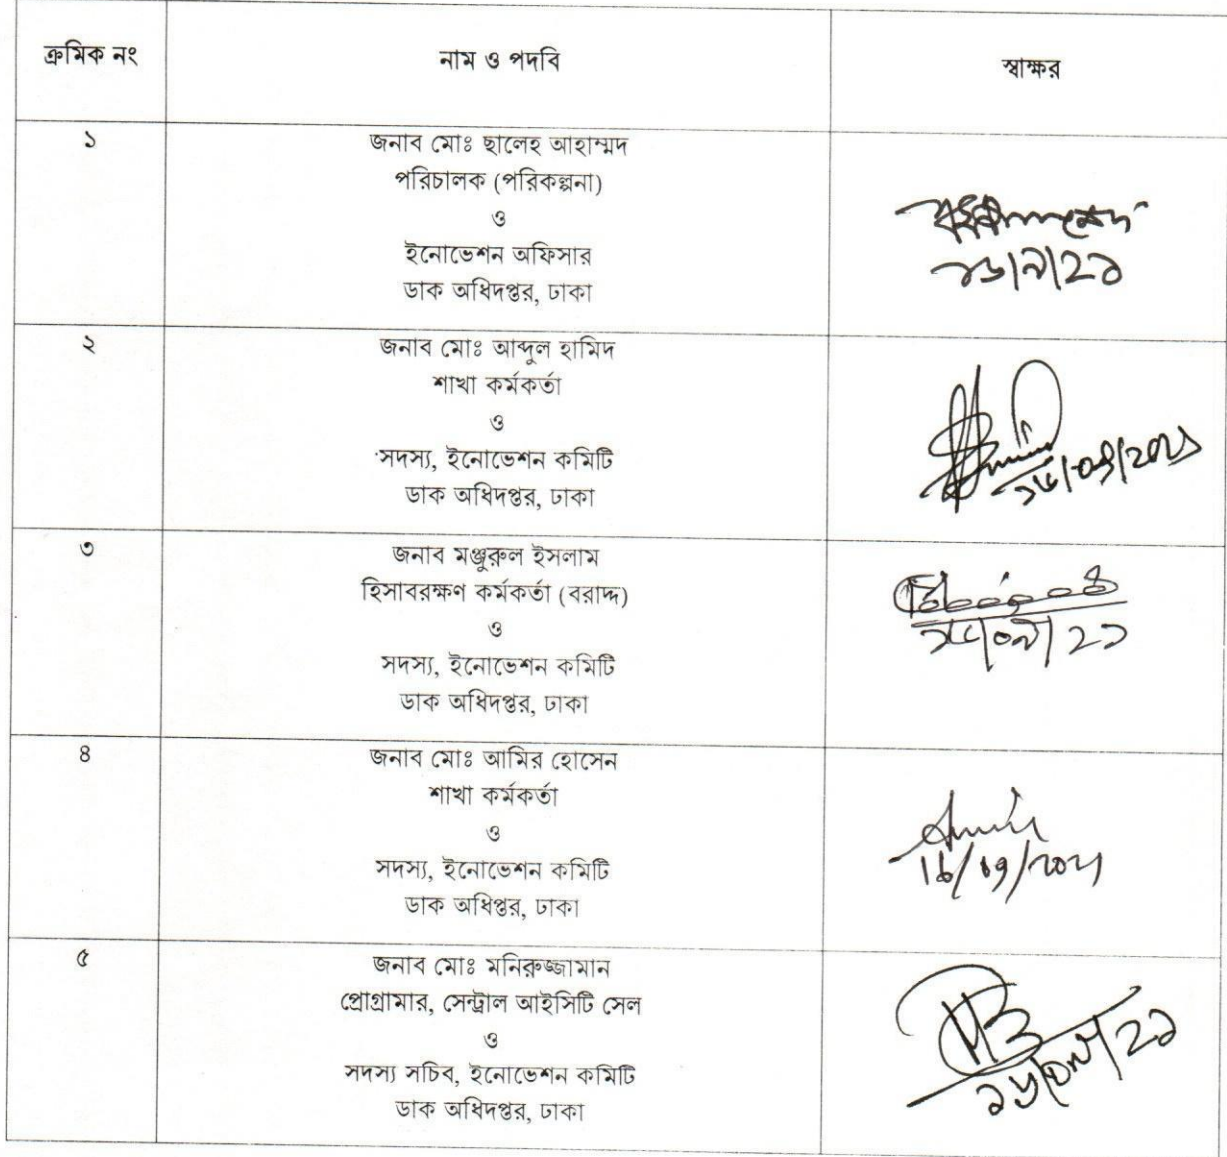 ক্রমিক নং নাম ও পদবি স্বাক্ষর
১ জনাব মোঃ ছালেহ আহাম্মদ
পরিচালক (পরিকল্পনা)
ও
ইনোভেশন অফিসার
ডাক অধিদপ্তর, ঢাকা
১৬/৯/২১
২ জনাব মোঃ আব্দুল হামিদ
শাখা কর্মকর্তা
ও
সদস্য, ইনোভেশন কমিটি
ডাক অধিদপ্তর, ঢাকা
১৬/০৯/২০২১
৩ জনাব মঞ্জুরুল ইসলাম
হিসাবরক্ষণ কর্মকর্তা (বরাদ্দ)
ও
সদস্য, ইনোভেশন কমিটি
ডাক অধিদপ্তর, ঢাকা
১৬/০৯/২১
৪ জনাব মোঃ আমির হোসেন
শাখা কর্মকর্তা
ও
সদস্য, ইনোভেশন কমিটি
ডাক অধিপ্তর, ঢাকা
16/09/2021
৫ জনাব মোঃ মনিরুজ্জামান
প্রোগ্রামার, সেন্ট্রাল আইসিটি সেল
ও
সদস্য সচিব, ইনোভেশন কমিটি
ডাক অধিদপ্তর, ঢাকা
১৬/০৯/২১